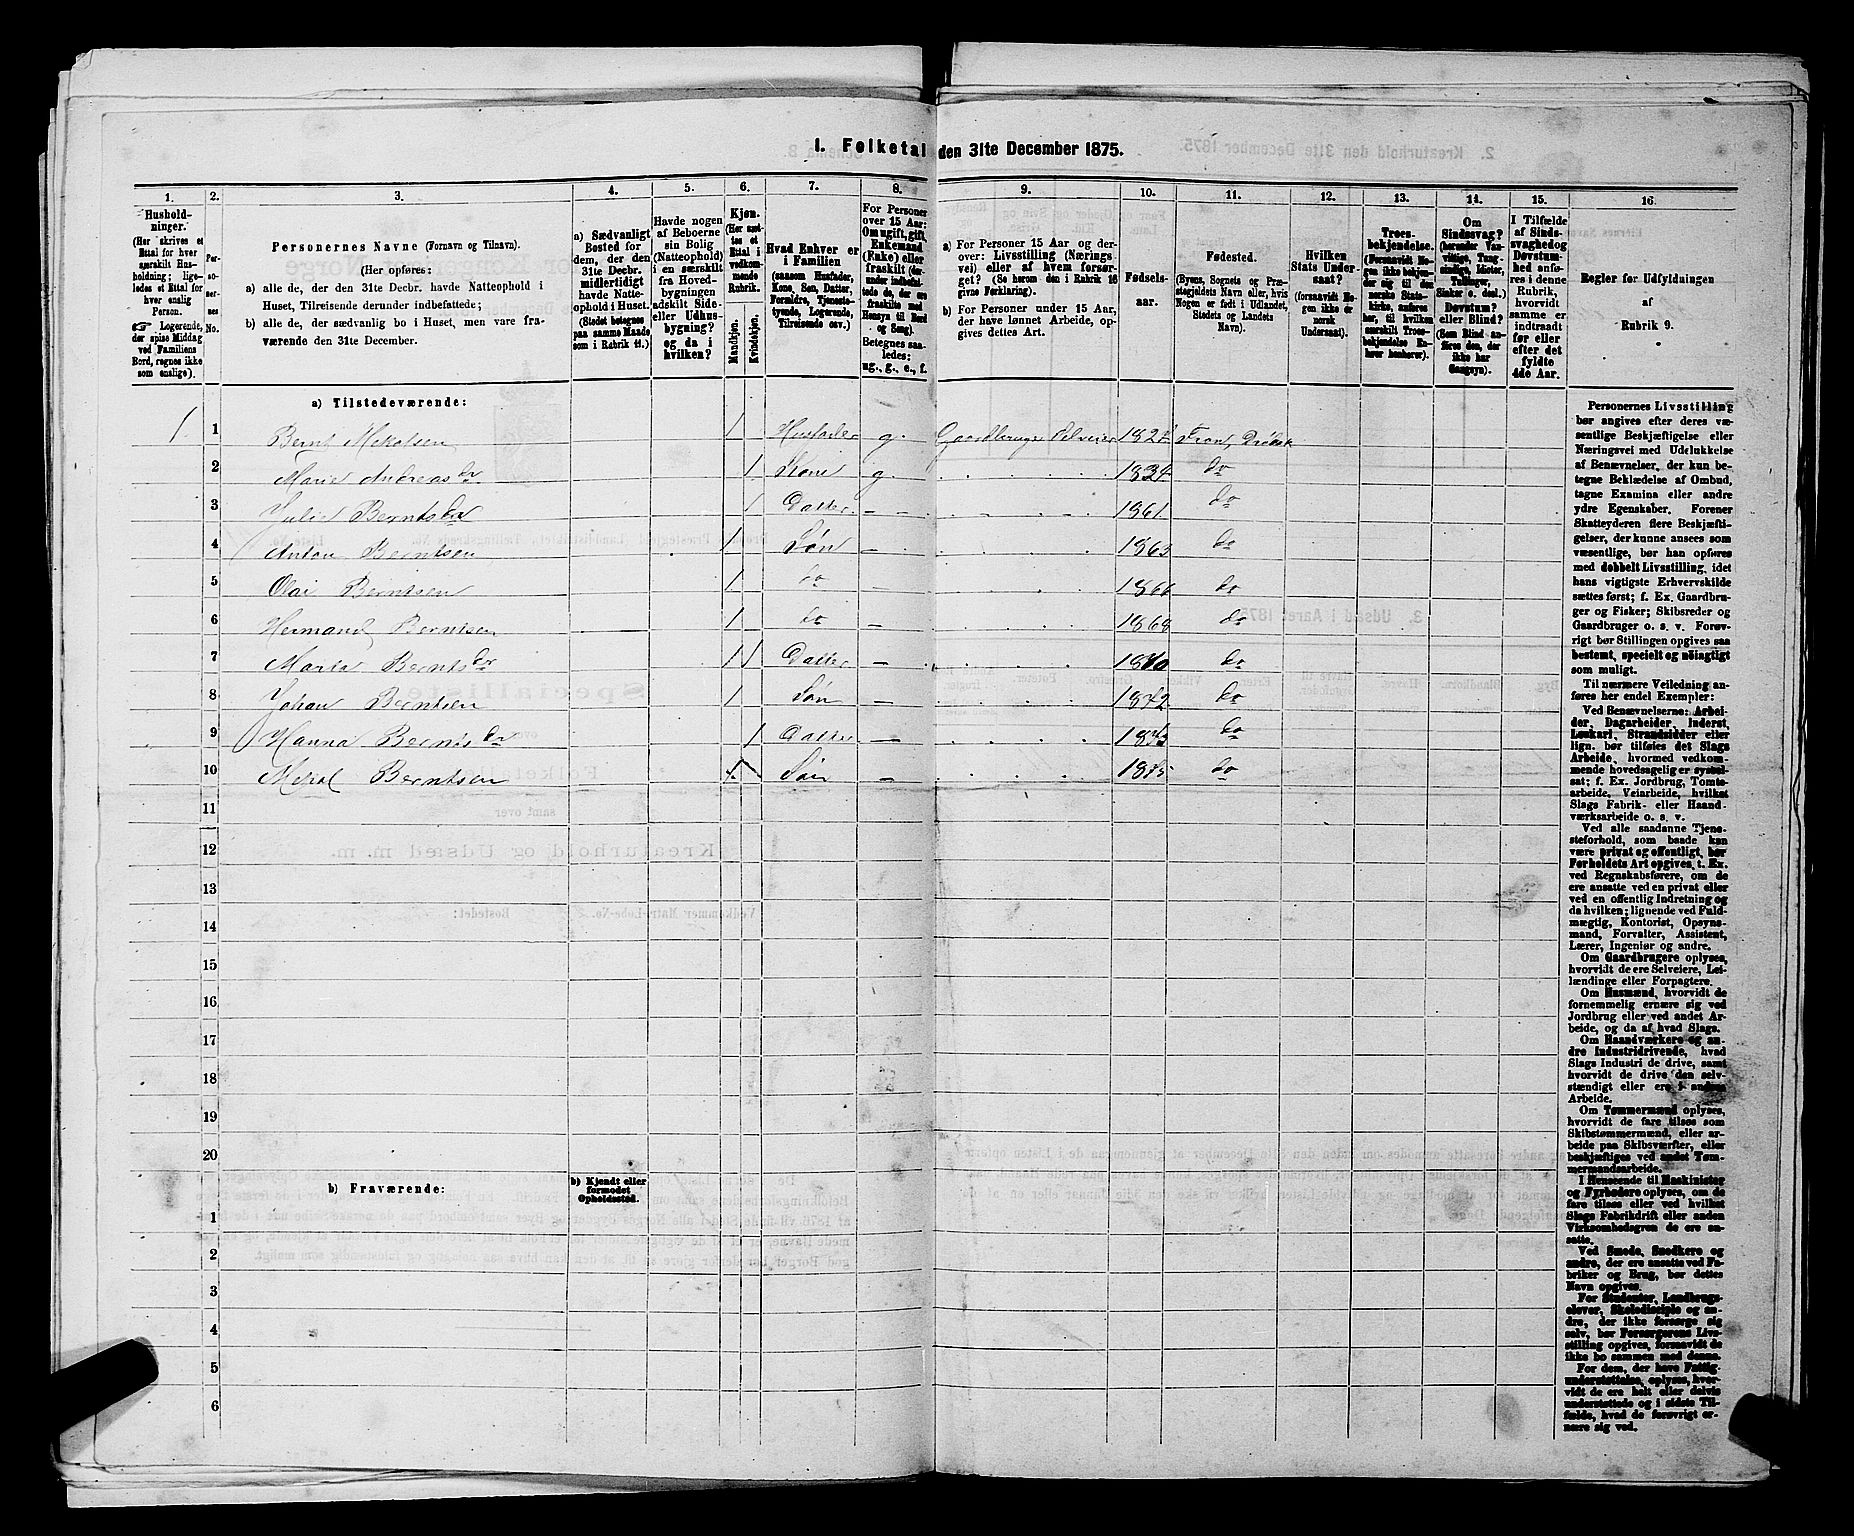 1. Folketal den 31te December 1875.
1. 2. 3. 4. 5. 6. 7. 8. 9. 10. 11. 12. 13. 14. 15. 16.
Husholdninger.
(Her skrives et Ettal for hver særskilt Husholdning; ligeledes et Ettal for hver enslig Person.
☞ Logerende, der spise Middag ved Familiens Bord, regnes ikke som enslige).
Personernes No.
Personernes Navne (Fornavn og Tilnavn).
(Her opføres:
a) alle de, der den 31te Decbr. havde Natteophold i Huset, Tilreisende derunder indbefattede;
b) alle de, der sædvanlig bo i Huset, men vare fraværende den 31te December.
a) Sædvanligt Bosted for dem, der den 31te Decbr. midlertidigt havde Natteophold i Huset. (Stedet betegnes paa samme Maade som i Rubrik 11.)
Havde nogen af Beboerne sin Bolig (Natteophold) i en særskilt fra Hovedbygningen adskilt Side- eller Udhusbygning? og da i hvilken?
Kjøn. (Her sættes et Ettal i vedkommende Rubrik.
Mandkjøn. Kvindekjøn.
Hvad Enhver er i Familien (saasom Husfader, Kone, Søn, Datter, Forældre, Tjenestetyende, Logerende, Tilreisende osv.)
For Personer over 15 Aar: Om ugift, gift, Enkemand (Enke) eller fraskilt (derunder indbefattede de, der ere fraskilte med Hensyn til Bord og Seng).
Betegnes saaledes: ug., g., e., f.
a) For Personer 15 Aar og derover: Livsstilling (Næringsvei) eller af hvem forsørget? (Se herom den i Rubrik 16 givne Forklaring).
b) For Personer under 15 Aar, der have lønnet Arbeide, opgives dettes Art.
Fødselsaar.
Fødested.
(Byens, Sognets og Præstegjeldets Navn eller, hvis Nogen er født i Udlandet, Stedets og Landets Navn).
Hvilken Stats Undersaat? (forsaavidt Nogen ikke er norsk Undersaat).
Troesbekjendelse. (Forsaavidt Nogen ikke bekjender sig til den norske Statskirke, anføres her, til hvilken særskilt Troesbekjendelse Enhver henhører).
Om Sindssvag? (herunder Vanvittige, Tungsindige, Idioter, Taabelige, Sinker o. desl.) Døvstum? eller Blind? (Som Blind anføres den, der ikke har Gangsyn).
I Tilfælde af Sindssvaghed og Døvstumhed anføres i denne Rubrik, hvorvidt samme er indtraadt før eller efter det fyldte 4de Aar.
Regler for Udfyldningen af Rubrik 9.
a) Tilstedeværende:
1 1 Bernt Mikalsen 1 Husfader g. Gaardbruger Selveier 1827 Fron, Drøbak
2 Marie Andreasdr 1 Kone g. 1834 do
3 Julie Berntsdr 1 Datter – 1861 do
4 Anton Berntsen 1 Søn – 1863 do
5 Olai Berntsen 1 do – 1866 do
6 Hermand Berntsen 1 do – 1868 do
7 Maria Berntsdr 1 Datter – 1870 do
8 Johan Berntsen 1 Søn – 1872 do
9 Hanna Berntsdr 1 Datter – 1873 do
10 Mikal Berntsen 1 Søn – 1875 do
11
12
13
14
15
16
17
18
19
20
b) Fraværende: b) Kjendt eller formodet Opholdssted.
1
2
3
4
5
6
Personernes Livsstilling bør angives efter deres væsentlige Beskjæftigelse eller Næringsvei med Udelukkelse af Benævnelser, der kun betegne Beklædelse af Ombud, tagne Examina eller andre ydre Egenskaber. Forener Skatteyderen flere Beskjæftigelser, der kunne ansees som væsentlige, bør han opføres med dobbelt Livsstilling, idet hans vigtigste Erhvervskilde sættes først; f. Ex. Gaardbruger og Fisker; Skibsreder og Gaardbruger o. s. v. Forøvrigt bør Stillingen opgives saa bestemt, specielt og nøiagtigt som muligt.
Til nærmere Veiledning anføres her endel Exempler:
Ved Benævnelserne: Arbeider, Dagarbeider, Inderst, Løskarl, Strandsidder eller lign. bør tilføies det Slags Arbeide, hvormed vedkommende hovedsagelig er sysselsat; f. Ex. Jordbrug, Tomtearbeide, Veiarbeide, hvilket Slags Fabrik- eller Haandværksarbeide o. s. v.
Ved alle saadanne Tjenesteforhold, som baade kan være privat og offentligt, bør Forholdets Art opgives, t. Ex. ved Regnskabsførere, om de ere ansatte ved en privat eller ved en offentlig Indretning og da hvilken; lignende ved Fuldmægtig, Kontorist, Opsynsmand, Forvalter, Assistent, Lærer, Ingeniør og andre.
Om Gaardbrugere oplyses, hvorvidt de ere Selveiere, Leilændinge eller Forpagtere.
Om Husmænd, hvorvidt de fornemmelig ernære sig ved Jordbrug eller ved andet Arbeide, og da af hvad Slags.
Om Haandværkere og andre Industridrivende, hvad Slags Industri de drive, samt hvorvidt de drive den selvstændigt eller ere i andres Arbeide.
Om Tømmermænd oplyses, hvorvidt de fare tilsøs som Skibstømmermænd, eller arbeide paa Skibsværfter, eller beskjæftiges ved andet Tømmermandsarbeide.
I Henseende til Maskinister og Fyrbødere oplyses, om de fare tilsøs eller ved hvilket Slags Fabrikdrift eller anden Virksomhedsgren de ere ansatte.
Ved Smede, Snedkere og andre, der ere ansatte ved Fabriker og Brug, bør dettes Navn opgives.
For Studenter, Landbrugselever, Skoledisciple og andre, der ikke forsørge sig selv, bør Forsørgerens Livsstilling opgives, forsaavidt de ikke bo sammen med denne.
For dem, der have Fattigunderstøttelse, oplyses, hvorvidt de ere helt eller delvis understøttede og i sidste Tilfælde, hvad de forøvrigt ernære sig ved.